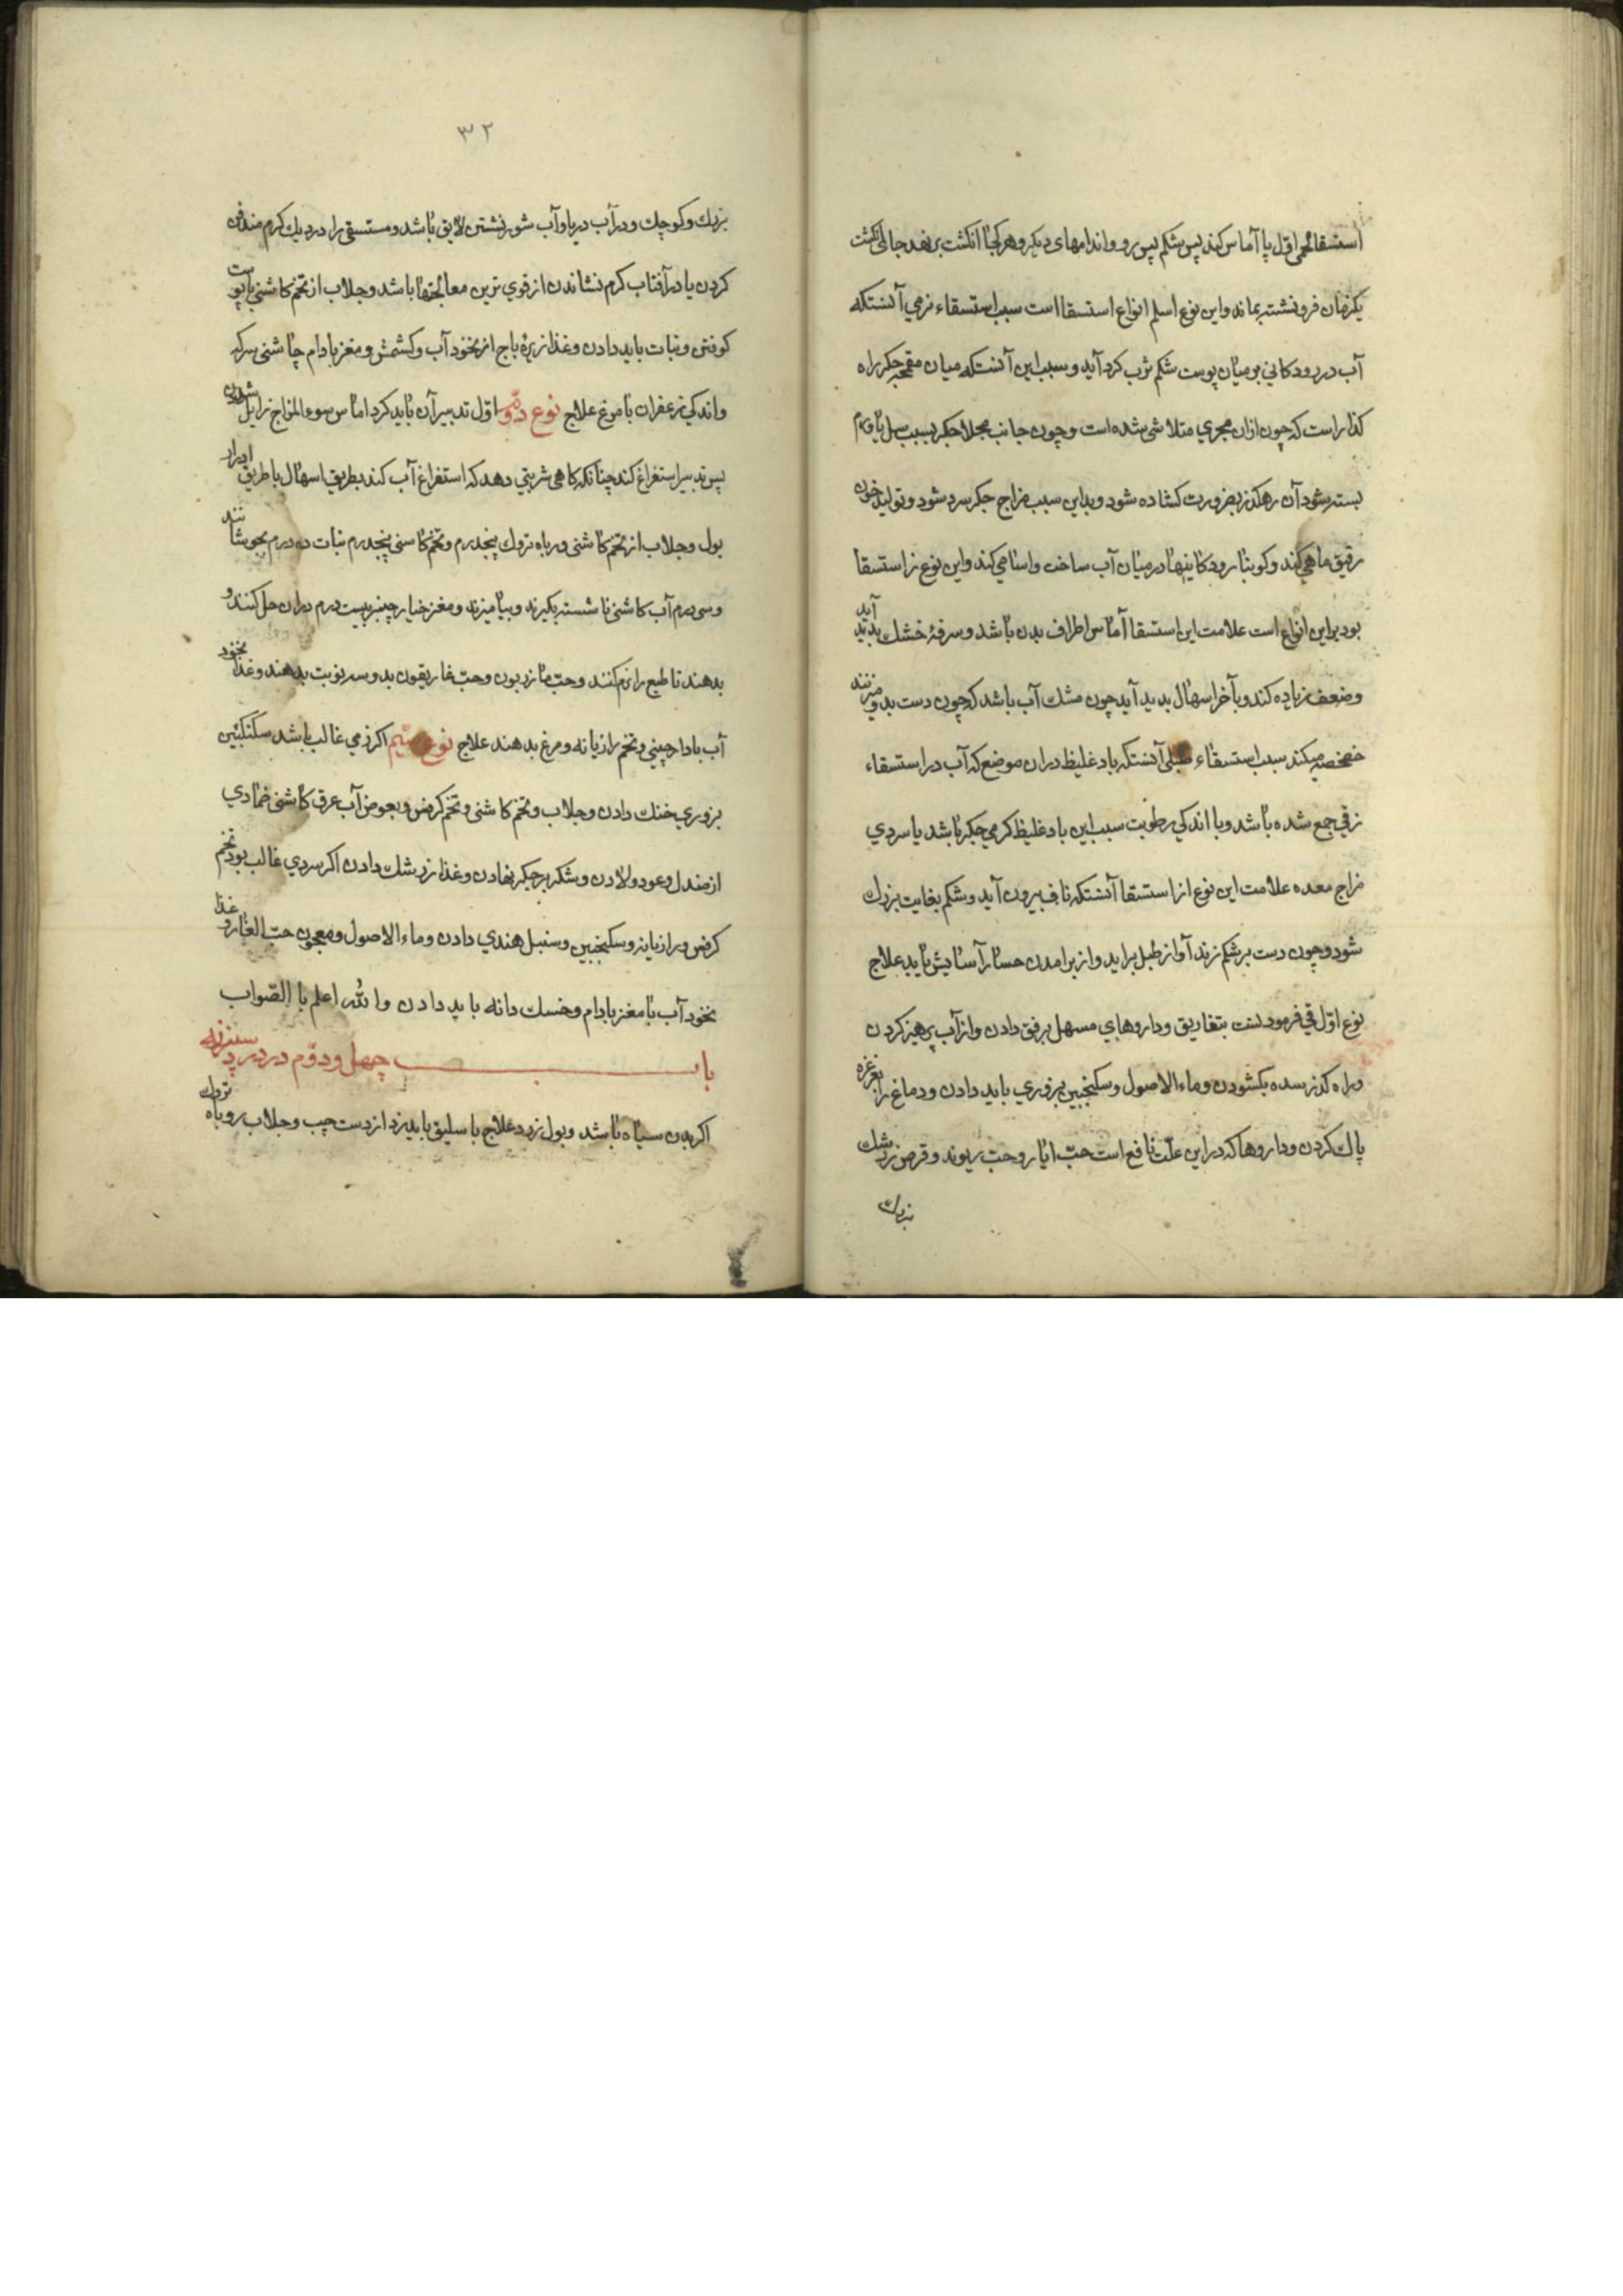 استسقا لحمی اوّل پا آماس کند پس شکم پس رو و اندامهای دیکر و هر کجا انکشت برنهد جای انکشت
یکزمان فرو نشسته بماند و این نوع اسلم انواع استسقا است سبب استسقاء زقی آنستکه
آب در رودکانی بو میان پوست شکم ثرب کرد آید و سبب این آنستکه میان مقعر جکر راه
کذار است که چون ازان مجری متلاشی شده است و چون جانب جکر بسبب
بسته شود آن رهکذر بضرورت کشاده شود و بداین سبب مزاج جکر سرد شود و تولید خون
رقیق ماهی کند و کوبنا رودکانیها در میان آب ساخت و اسنا می کند و این نوع ز استسقا
بود براین انواع است علامت این استسقا آماس اطراف بدن باشد و سرفهٔ خشک پدید آید
و ضعف زیاده کند و بآخر اسهال پدید آید چون مشک آب باشد که چون دست بدو میزنند
خضخضه میکند سبب استسقاء طبلی آنستکه باد غلیظ دران موضع که آب در استسقاء
زقی جمع شده باشد و با اندکی رطوبت سبب این باد غلیظ کرمی جکر باشد یا سردی
مزاج معده علامت این نوع از استسقا آنستکه ناف بیرون آید و شکم بغایت بزرك
شود و چون دست بر شکم زند آواز طبل براید و از برامدن جسا را آسایش یابد علاج
نوع اوّل قی فرمودنست بتفاریق و داروهای مسهل برفق دادن و از آب پرهیز کردن
و راه کذر سده بکشودن و ماء الاصول و سکنجبین بزوری باید دادن و دماغ را بغرغره
پاك کردن و داروها که دراین علّت نافع است حبّ ایارو حب ریوند و قرص زرشك
بزرك
٣٢
بزرك و کوچك و در آب دریا و آب شور نشستن لایق باشد و مستسقی را در دیك کرم مندفن
کردن یا در آفتاب کرم نشاندن از قوی ترین معالجتها باشد و جلاب از تخم کاشنی با پوست
کوفتن و نبات باید دادن و غذا زیرهٔ باج از نخود آب و کشمش و مغز بادام چاشنی سرکه
و اندکی زعفران با مرغ علاج نوع دوّم اوّل تدبیر آن باید کرد اماس سوء المزاج زایل شدن
پس تدبیر استفراغ کند چنانکه کاهی شربتی دهد که استفراغ آب کند بطریق اسهال یا طریق ادرار
بول و جلاب از تخم کاشنی و رباه تروك پنجدرم و تخم کاسنی پنجدرم نبات ده درم بجوشانند
و سی درم آب کاشنی ناشسته بکیرند و بیامیزند و مغز خیار چنبر بیست درم دران حل کنند و
بدهند تا طبع را نرم کنند و حبّ مازریون و حبّ غاریقون بدو سه نوبت بدهند و غذا بخود
آب با دارچینی و تخم رازیانه و مرغ بدهند علاج نوع سیّم اکر زمی غالب باشد سکنکبین
بزوری خنك دادن و جلاب و تخم کاشنی و تخم کرفس و بعوض آب عرق کاشنی ضمادی
از صندل و عود و لادن و شکر بر جکر نهادن و غذا زرشك دادن اکر سردی غالب بود تخم
کرفس و رازیانه و سکنجبین و سنبل هندی دادن و ماء الاصول و معجون حبّ الغار و غذا
نخود آب با مغز بادام و خسك دانه باید دادن والله اعلم با الصّواب
باب چهل و دوّم در درد سپرز
اکر بدن سیاه باشد و بول زرد علاج باسلیق باید زد از دست چپ و جلاب روباه تروك